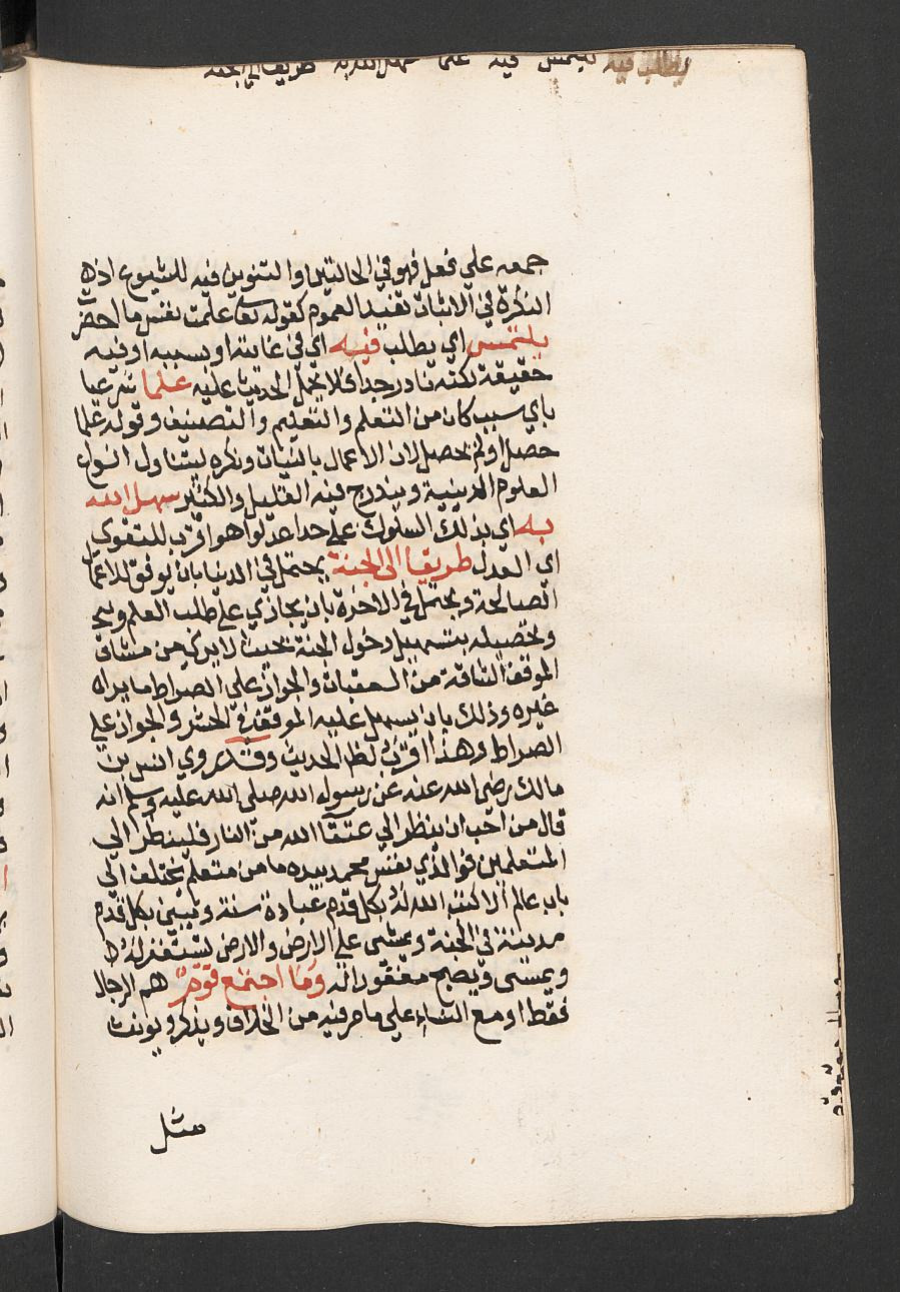 يطلب فيه يلتمس فيه علما سهل الله به طريقا الي الجنة
جمعه علي فعل فهو في الحالتين والتنوين فيه للشيوع اذ
النكرة في الاثبات تفيد العموم كقوله تعا علمت نفس ما احضرت
يلتمس اي يطلب فيه اي في غايته او بسببه او فيه
حقيقة لكنه نادر جدا فلا يحمل الحديث عليه علما شرعيا
باي سبب كان من التعلم والتعليم والتصنيف وقوله علما
حصل او لم يحصل لان الاعمال بالنيات ونكره ليتناول انواع
العلوم الدينية ويندرج فيه القليل والكثير سهل الله
به اي بذلك السلوك علي حد اعدلوا هو اقرب للتقوي
اي العدل طريقا الي الجنة يحتمل في الدنيا بان يوفق للاعمال
الصالحة ويحتمل في الاخرة بان يجازي علي طلب العلم
وتحصيله بتسهيل دخول الجنة بحيث لا يري من مشاق
الموقف الشاقة من العقبات والجواز علي الصراط ما يراه
غيره وذلك بان يسهل عليه الموقف في الحشر والجواز علي
الصراط وهذا اقرب لظم الحديث وقد روي انس بن
مالك رضي الله عنه عن رسول الله صلي الله عليه وسلم انه
قال من احب ان ينظر الي عتقا الله من النار فلينظر الي
المتعلمين فوالذي نفس محمد بيده ما من متعلم يختلف الي
باب عالم الا كتب الله له بكل قدم عبادة سنة ويبني بكل قدم
مدينة في الجنة ويمشي علي الارض والارض تستغفر له
ويمسي ويصبح مغفورا له وما اجتمع قوم هم الرجال
فقط او مع النساء علي ما مر فيه من الخلاف ويذكر ويونث
مثل